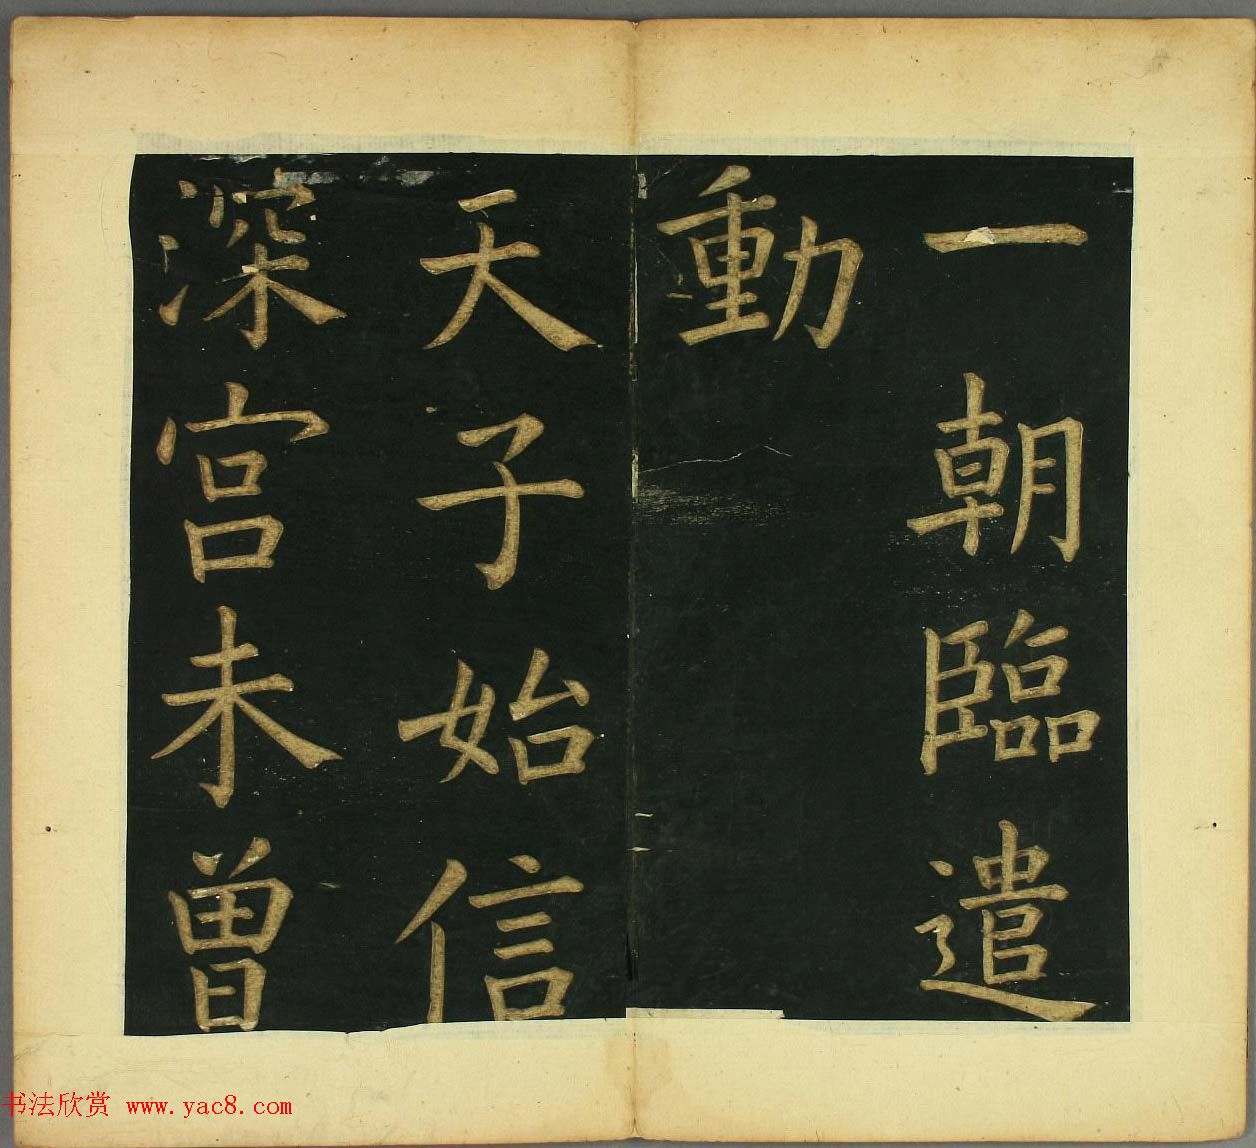 一朝臨遣
動
天子始信
深宮未曽
书法欣赏 www.yac8.com